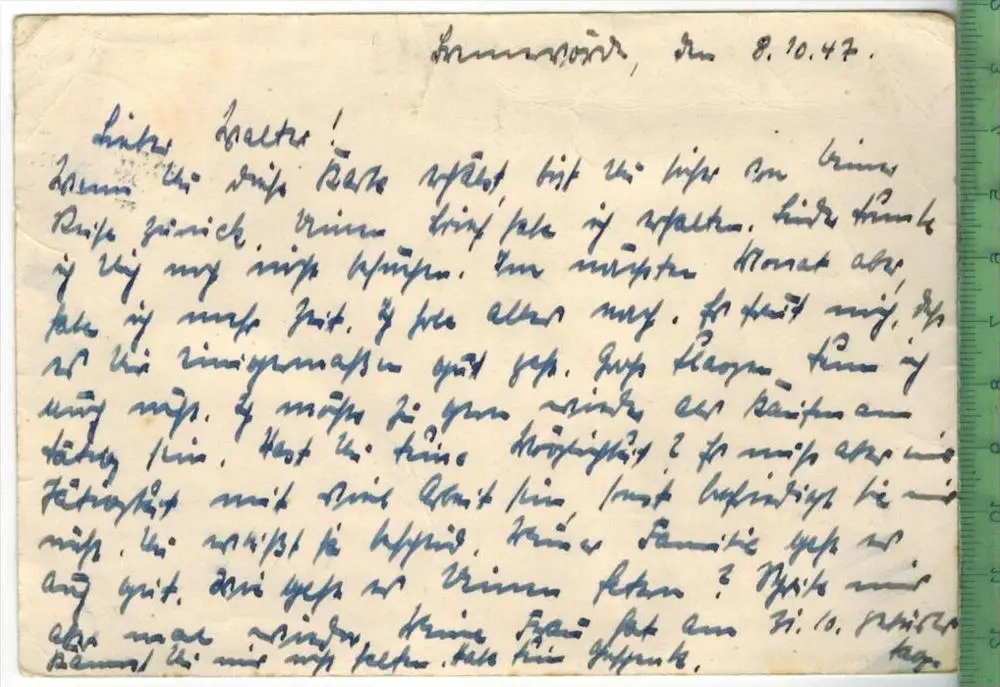 Bremervörde, den 8.10.47.
Lieber Walter!
Wenn Du diese Karte erhältst, bist Du sicher von Deiner
Reise zurück. Deinen Brief habe ich erhalten. Leider konnte
ich Dich noch nicht besuchen. Im nächsten Monat aber,
habe ich mehr Zeit. Ich hole alles nach. Es freut mich, daß
es Dir einigermaßen gut geht. Große Klagen kann ich
auch nicht. Ich möchte zu gern wieder als Kaufmann
tätig sein. Hast Du keine Möglichkeit? Es muß aber eine
Tätigkeit mit viel Arbeit sein, sonst befriedigt sie mich
nicht. Du weißt ja bescheid. Meiner Familie geht es
auch gut. Wie geht es Deinen Eltern? Schreibe mir
aber mal wieder. Meine Frau hat am 31.10. Geburts-
tag.
Kannst Du mir nicht helfen. Habe kein Geschenk.